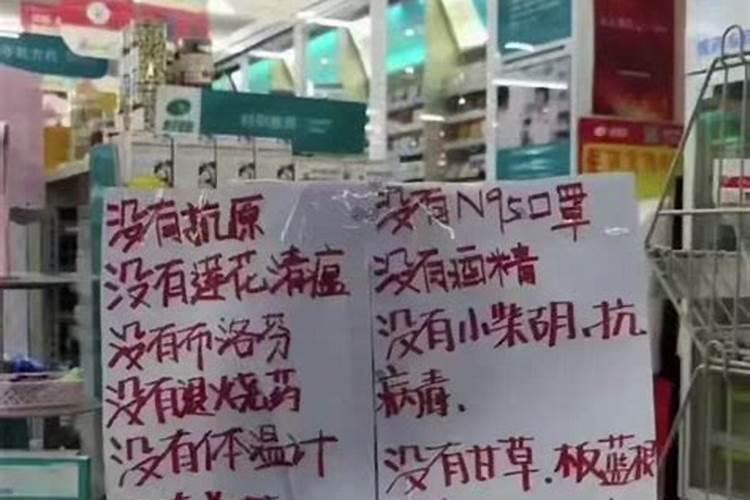 没有抗原
没有莲花清瘟
没有布洛芬
没有退烧药
没有体温计
没有N95口罩
没有酒精
没有小柴胡、抗
病毒.
没有甘草.板蓝根